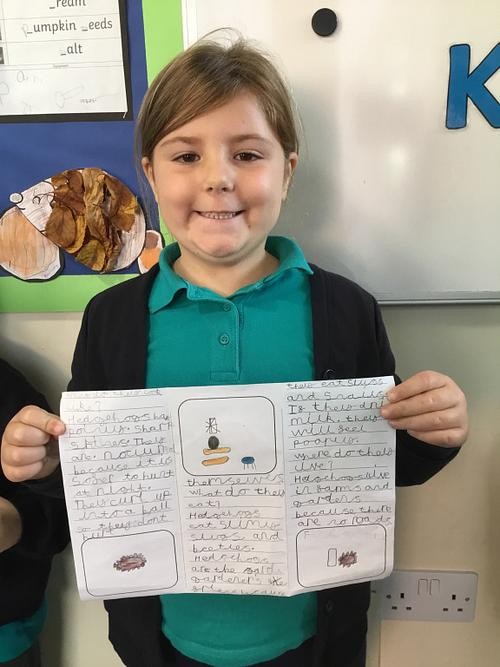 _ream
_umpkin _eeds
_alt
K
like?
Hedgehogs have
Pointy sharp
Spikes. They
are nocturnal
because it is
safer to hunt
at night.
They curl up
into a ball
so they dont
hurt
themselves
What do they
eat?
Hedgehogs
eat slimis
slugs and
beetles.
Hedgehogs
are the
gardeners
they eat slugs
and snails.
If they drink
milk they
will feel
poorly.
where do they
live?
Hedgehogs live
in farms and
gardens
because there
are no